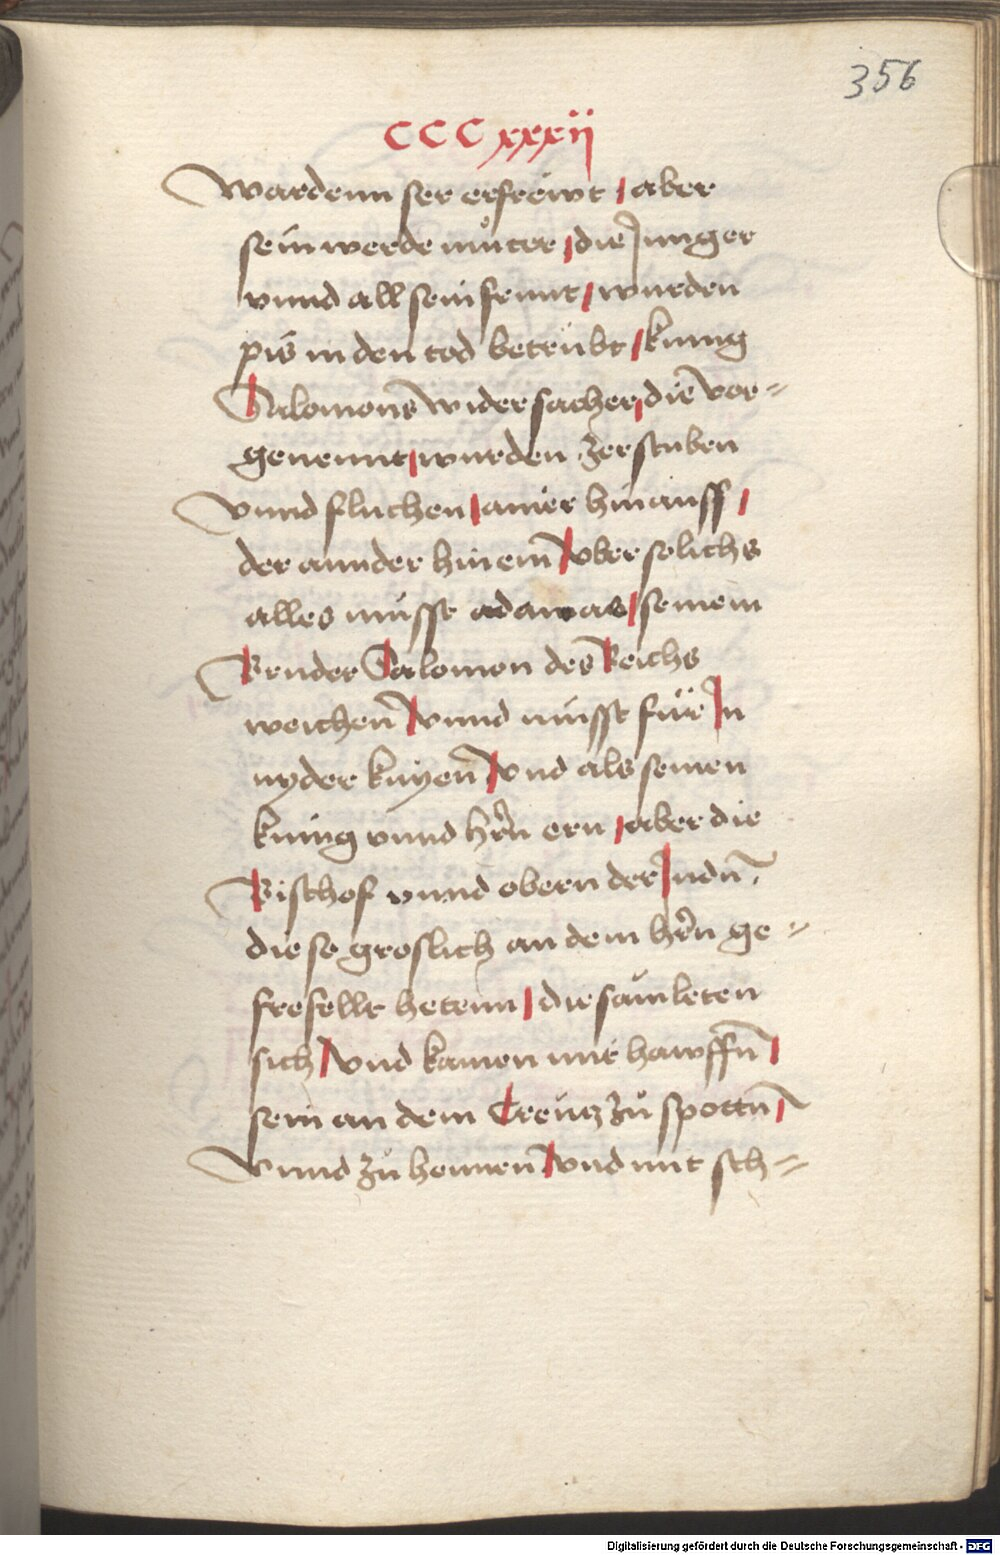 356
CCCxxxii
wardenn ser erfrewt / aber
sein werde můter / die Junger
vnnd all sein frunt / wurden
pis in den tod betrubt / kunig
Salomons widersacher / die vor-
genennt / wurden zerstuben
vnnd fluchen / ainer hinauss /
der annder hinein / vber solichs
alles musst adamas / seinem
Bruder Salomon des Reichs
weichen / vnnd musst für In
nyder knyen / vnd als seinen
kunig vnnd hern ern / aber die
Bischof vnnd obern der Judn̄ /
die so groslich an dem hern ge-
frefellt hetenn / die samleten
sich / vnd kamen mit hawffn̄ /
sein an dem Creutz zů spottn̄ /
vnnd zů honnen / vnd mit sch-
Digitalisierung gefördert durch die Deutsche Forschungsgemeinschaft - DFG